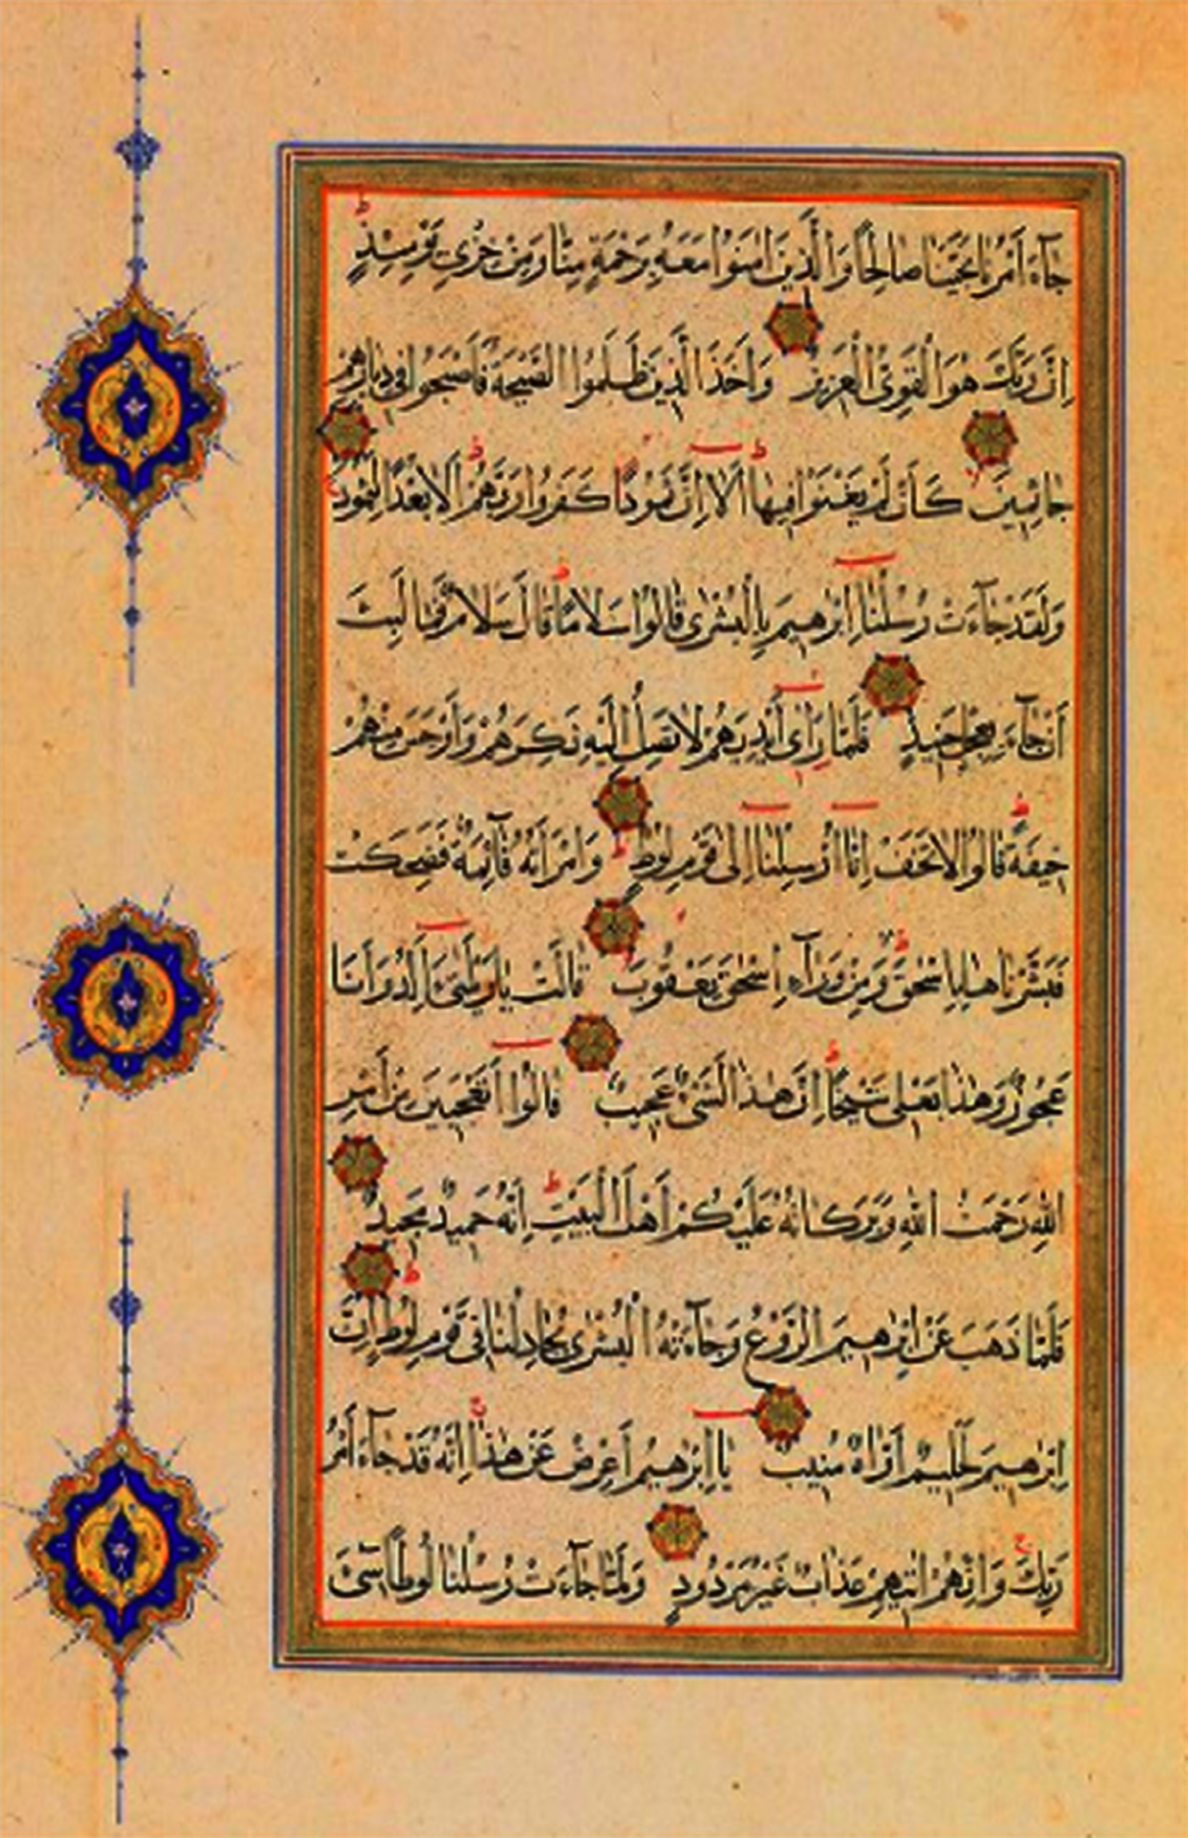 جَآءَ أَمْرُنَا نَجَّيْنَا صَالِحًا وَالَّذِينَ اٰمَنُوا مَعَهُ بِرَحْمَةٍ مِنَّا وَمِنْ خِزْيِ يَوْمِئِذٍ ط
اِنَّ رَبَّكَ هُوَ الْقَوِيُّ الْعَزِيزُ وَاَخَذَ الَّذِينَ ظَلَمُوا الصَّيْحَةُ فَاَصْبَحُوا فِي دِيَارِهِمْ
جَاثِمِينَ كَأَنْ لَمْ يَغْنَوْا فِيهَا ط اَلَا اِنَّ ثَمُودًا كَفَرُوا رَبَّهُمْ ط اَلَا بُعْدًا لِثَمُودَ
وَلَقَدْ جَآءَتْ رُسُلُنَا اِبْرٰهِيمَ بِالْبُشْرٰى قَالُوا سَلَامًا ط قَالَ سَلَامٌ فَمَا لَبِثَ
اَنْ جَآءَ بِعِجْلٍ حَنِيذٍ فَلَمَّا رَاٰى اَيْدِيَهُمْ لَا تَصِلُ اِلَيْهِ نَكِرَهُمْ وَاَوْجَسَ مِنْهُمْ
خِيفَةً ط قَالُوا لَا تَخَفْ اِنَّا اُرْسِلْنَا اِلٰى قَوْمِ لُوطٍ ط وَامْرَاَتُهُ قَآئِمَةٌ فَضَحِكَتْ
فَبَشَّرْنَاهَا بِاِسْحٰقَ وَمِنْ وَرَآءِ اِسْحٰقَ يَعْقُوبَ قَالَتْ يَا وَيْلَتٰى ءَاَلِدُ وَاَنَا
عَجُوزٌ وَهٰذَا بَعْلِي شَيْخًا ط اِنَّ هٰذَا لَشَيْءٌ عَجِيبٌ قَالُوا اَتَعْجَبِينَ مِنْ اَمْرِ
اللهِ رَحْمَتُ اللهِ وَبَرَكَاتُهُ عَلَيْكُمْ اَهْلَ الْبَيْتِ ط اِنَّهُ حَمِيدٌ مَجِيدٌ
فَلَمَّا ذَهَبَ عَنْ اِبْرٰهِيمَ الرَّوْعُ وَجَآءَتْهُ الْبُشْرٰى يُجَادِلُنَا فِي قَوْمِ لُوطٍ ط اِنَّ
اِبْرٰهِيمَ لَحَلِيمٌ اَوَّاهٌ مُنِيبٌ يَا اِبْرٰهِيمُ اَعْرِضْ عَنْ هٰذَا ج اِنَّهُ قَدْ جَآءَ اَمْرُ
رَبِّكَ ج وَاِنَّهُمْ اٰتِيهِمْ عَذَابٌ غَيْرُ مَرْدُودٍ وَلَمَّا جَآءَتْ رُسُلُنَا لُوطًا سِيٓءَ